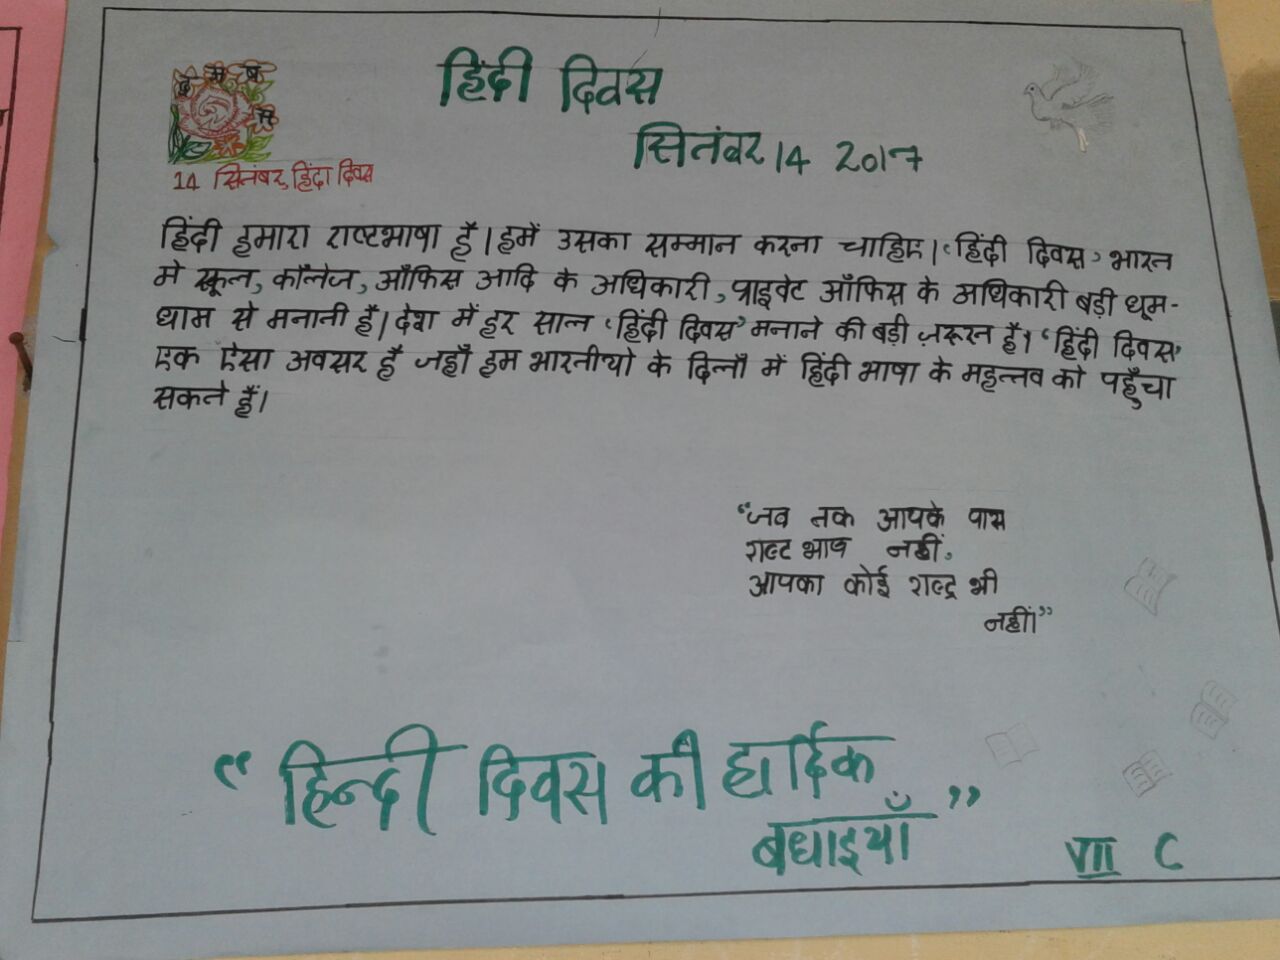 हिंदी दिवस
सितंबर 14 2017
14 सितंबर, हिंदा दिवस
हिंदी हमारा राष्टभाषा है। हमें उसका सम्मान करना चाहिए। ‘हिंदी दिवस’ भारत
मे स्कूल, कॉलेज, ऑफिस आदि के अधिकारी, प्राइवेट ऑफिस के अधिकारी बड़ी धूम-
धाम से मनाती है। देश में हर साल ‘हिंदी दिवस’ मनाने की बड़ी ज़रूरत है। ‘हिंदी दिवस’
एक ऐसा अवसर है जहाँ हम भारतीयो के दिलों में हिंदी भाषा के महत्तव को पहुँचा
सकते हैं।
“जब तक आपके पास
राष्ट भाष नहीं,
आपका कोई राष्ट्र भी
नहीं।”
“हिन्दी दिवस की हार्दिक
बधाइयाँ”
VII C